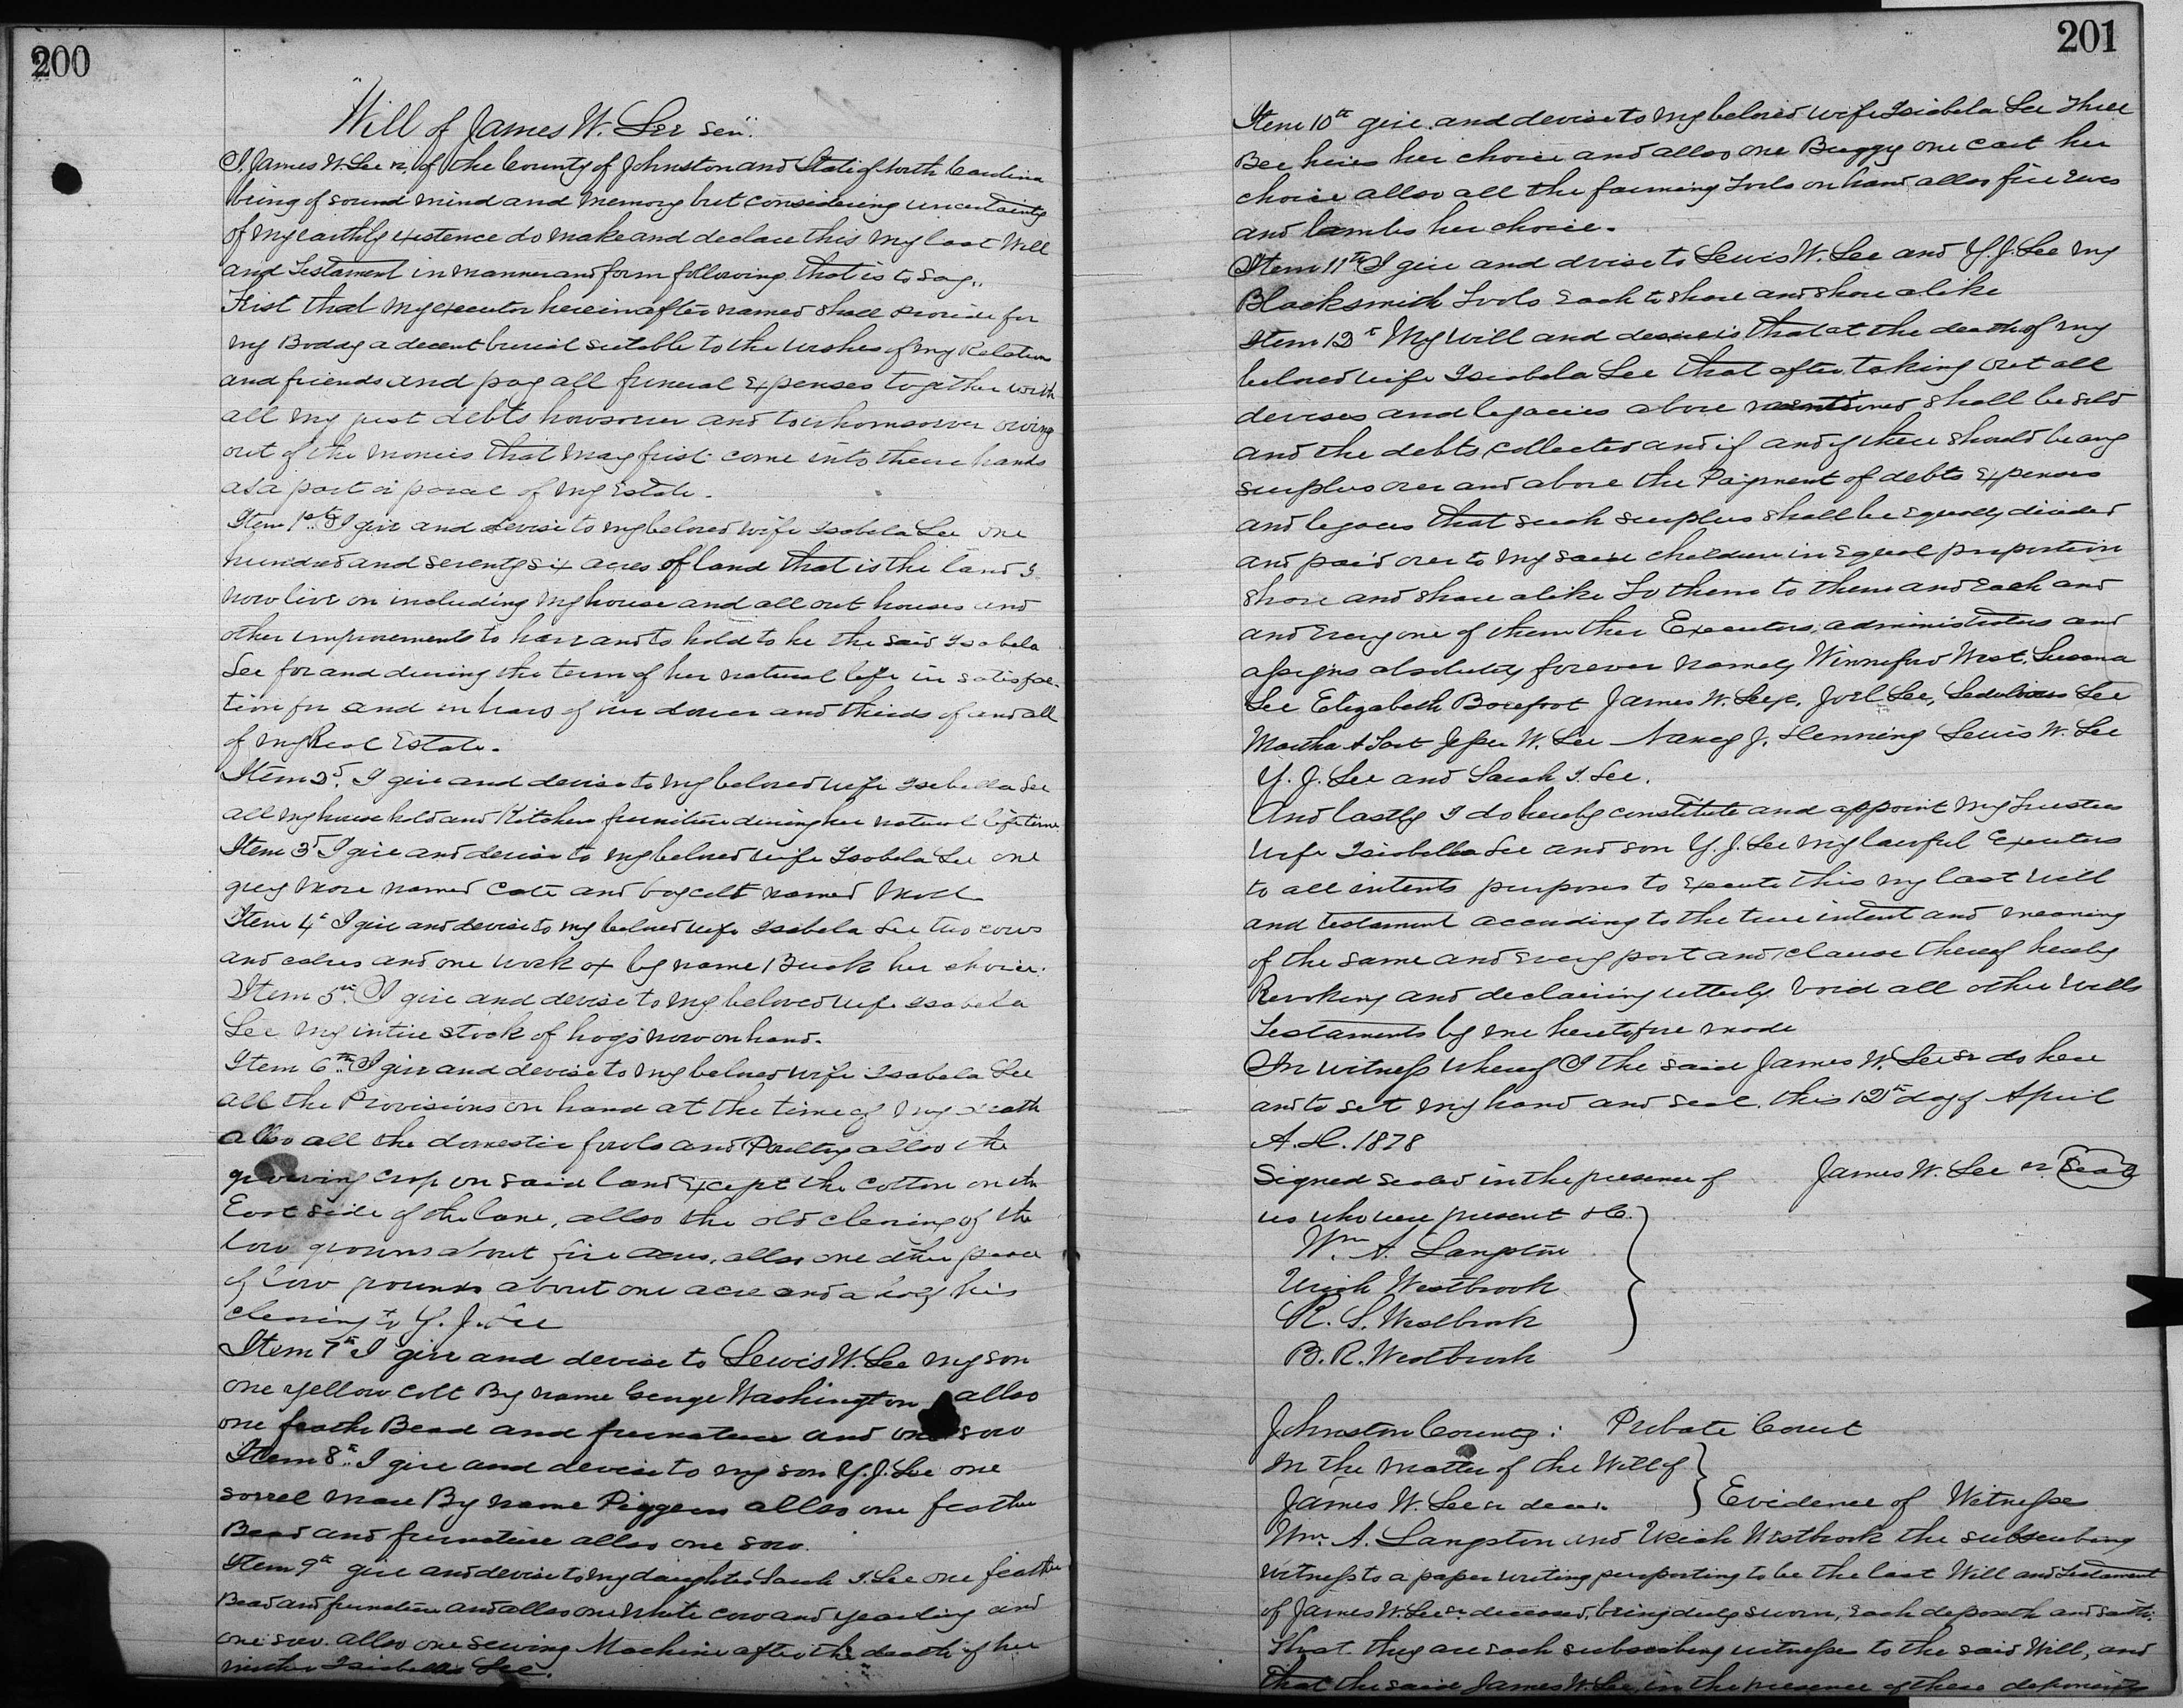 200
"Will of James W. Lee Sen"
I, James W. Lee sr, of the County of Johnston and State of North Carolina
being of sound mind and memory but considering uncertainty
of my earthly existence do make and declare this my last Will
and Testament in manner and form following that is to say,,
First that my executor hereinafter named shall provide for
my Boddy a decent burial sutable to the wishes of my Relations
and friends and pay all funeral expenses together with
all my just debts howsoever and to whomsoever owing
out of the monies that may first come into there hands
as a part or parcel of my Estate.
Item 1st I give and devise to my beloved wife Isabela Lee one
hundred and seventy six acres of land that is the land I
now live on including my house and all out houses and
other improvements to have and to hold to he the said Isabela
Lee for and during the term of her natural life in satisfac-
tion for and in lieu of her dower and thirds of and all
of my Real Estate.
Item 2d. I give and devise to my beloved wife Isabella Lee
all my house hold and Kitchen furniture during her natural life time
Item 3d I give and devise to my beloved wife Isabela Lee one
grey mare named Cate and bay colt named Moll
Item 4th I give and devise to my beloved wife Isabela Lee two cows
and calves and one work ox by name Buck her choice.
Item 5th. I give and devise to my beloved wife Isabela
Lee my intire stock of hogs now on hand.
Item 6th. I give and devise to my beloved wife Isabela Lee
all the Provisions on hand at the time of my death
allso all the domestic fowls and Poultry allso the
growing crop on said land except the cotton on the
East side of the lane, allso the old clening of the
low grouns about five acres, allso one other peace
of low grounds about one acre and a half his
clening to Y. J. Lee
Item 7th I give and devise to Lewis W. Lee my son
one yellow colt By name George Washington allso
one feathe Bead and furnature and one sow
Item 8th. I give and devise to my son Y. J. Lee one
sorrel mare By name Piggeen allso one feather
Bead and furnature allso one sow.
Item 9th give and devise to my daughter Sarah I. Lee one feather
Bead and furnature and allso one white cow and yearling and
one sow. allso one sewing Machine after the death of her
mother Isiabella Lee.
201
Item 10th give and devise to my beloved wife Isiabela Lee three
Bee hives her choice and allso one Buggy one cart her
choice allso all the farming Tools on hand allso five Ewes
and lambs her choice.
Item 11th I give and dvise to Lewis W. Lee and Y. J. Lee my
Blacksmith Tools each to share and share alike
Item 12th My will and desire is that at the death of my
beloved wife Isiabela Lee that after taking out all
devises and legacies above mentioned shall be sold
and the debts collected and if and if there should be any
surplus over and above the Payment of debts expenses
and legaces that such surplus shall be equally divided
and paid over to my said children in equal proportion
share and share alike To them to them and each and
and every one of them ther Executors, administrators and
assigns absolutely forever namely Winneford West, Susana
Lee Elizabeth Barefoot James W. Lee jr, Joel Lee, Lee
Martha A Tart Jesper W. Lee Nancy J. Henning Lewis W. Lee
Y. J. Lee and Sarah I. Lee.
And lastly I do hereby constitute and appoint my Trustees
wife Isiabella Lee and son Y. J. Lee my lawful Executors
to all intents purposes to execute this my last will
and testament according to the true intent and meaning
of the same and every part and clause thereof hereby
Revoking and declaring utterly void all other wills
Testaments by me heretofore made
In witness whereof I the said James W. Lee sr do here
and to set my hand and seal. this 12th day of April
A. D. 1878
Signed sealed in the presence of James W. Lee sr. Seal
us who were present &c.
Wm A. Langston
Uriah Westbrook
R. S. Westbrook
B. R. Westbrook
Johnston County: Probate Court
In the matter of the Will of
James W. Lee sr decd. Evidence of Witnesses
Wm. A. Langston and Uriah Westbrook the subscribing
witness to a paper writing purporting to be the last Will and Testament
of James W. Lee sr deceased, being duly sworn, each deposeth and saith:
That they are each subscribing witness to the said Will, and
that the said James W. Lee, in the presence of these deponents